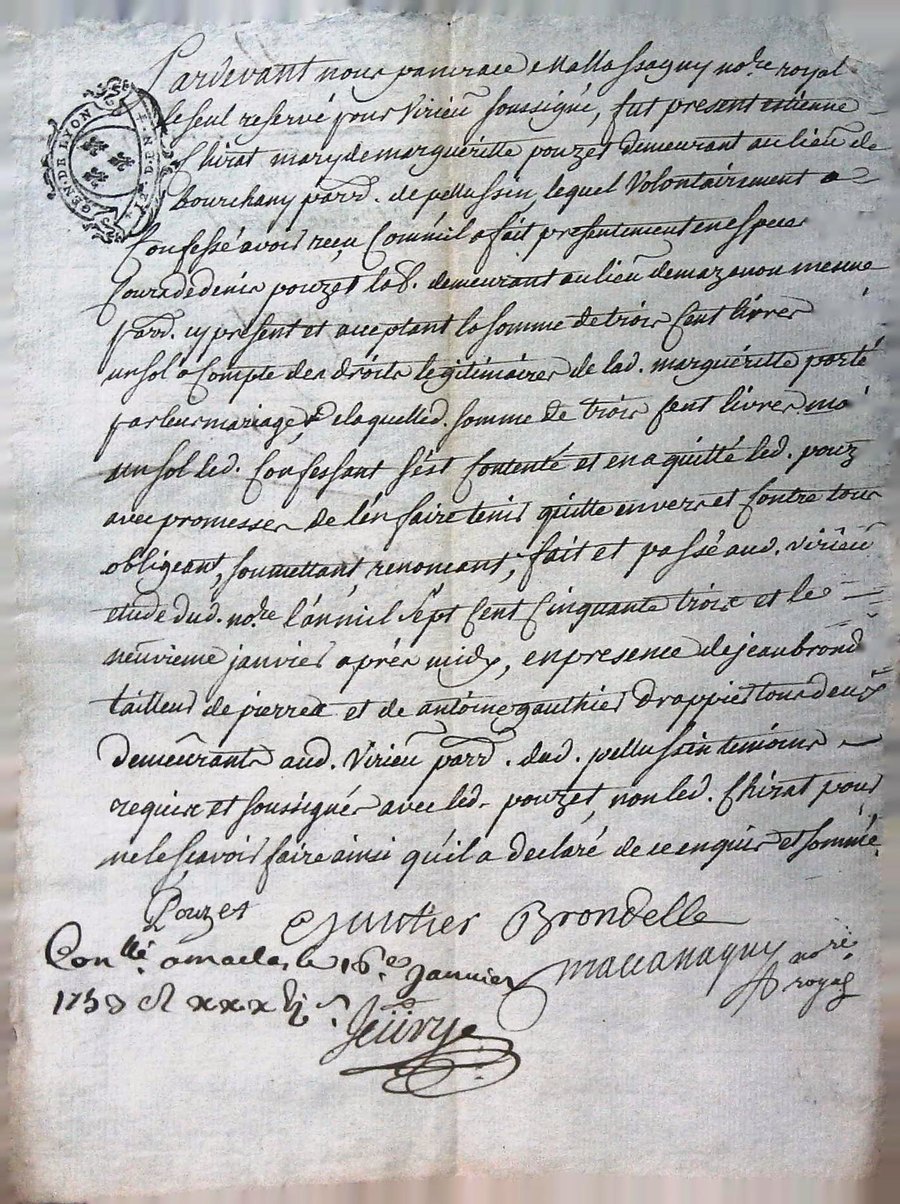 GEN. DE LYON
Pardevant nous pancrace no.re royal
le seul reservé pour Virieu soussigné, fut present estienne
Chirat mary de marguéritte pouzet demeurant au lieu de
bourchany parr. de pellussin, lequel Volontairement a
Confessé avoir reçu Comm'il a fait presentement en especes
Cours de denis pouzet lab.r demeurant au lieu de mazonon mesme
parr. cy present et acceptant la somme de trois Cent livres
un sol a Compte des droits legitimaires de lad. marguéritte porté
par leur mariage de laquelle d. somme de trois Cent livres
un sol led. Confessant s'est Contenté et en a quitté led. pouz
avec promesses de l'en faire tenir quitte envers et Contre tous
obligeant, soumettant, renonceant, fait et passé aud. Virieu
etude dud. no.re l'an mil sept Cent Cinquante trois et le
neuvieme janvier aprés midy, en presence de jean brond
tailleur de pierres et de antoine gauthier drappier tous deux
demeurants aud. Virieu parr. dud. pellussin temoins
requis et soussignés avec led. pouzet, non led. Chirat pour
ne le scavoir faire ainsi qu'il a declaré de ce enquis et sommé
Pouzet Gautier Brondelle
Con.llé a le 16.e Janvier no.re
royal